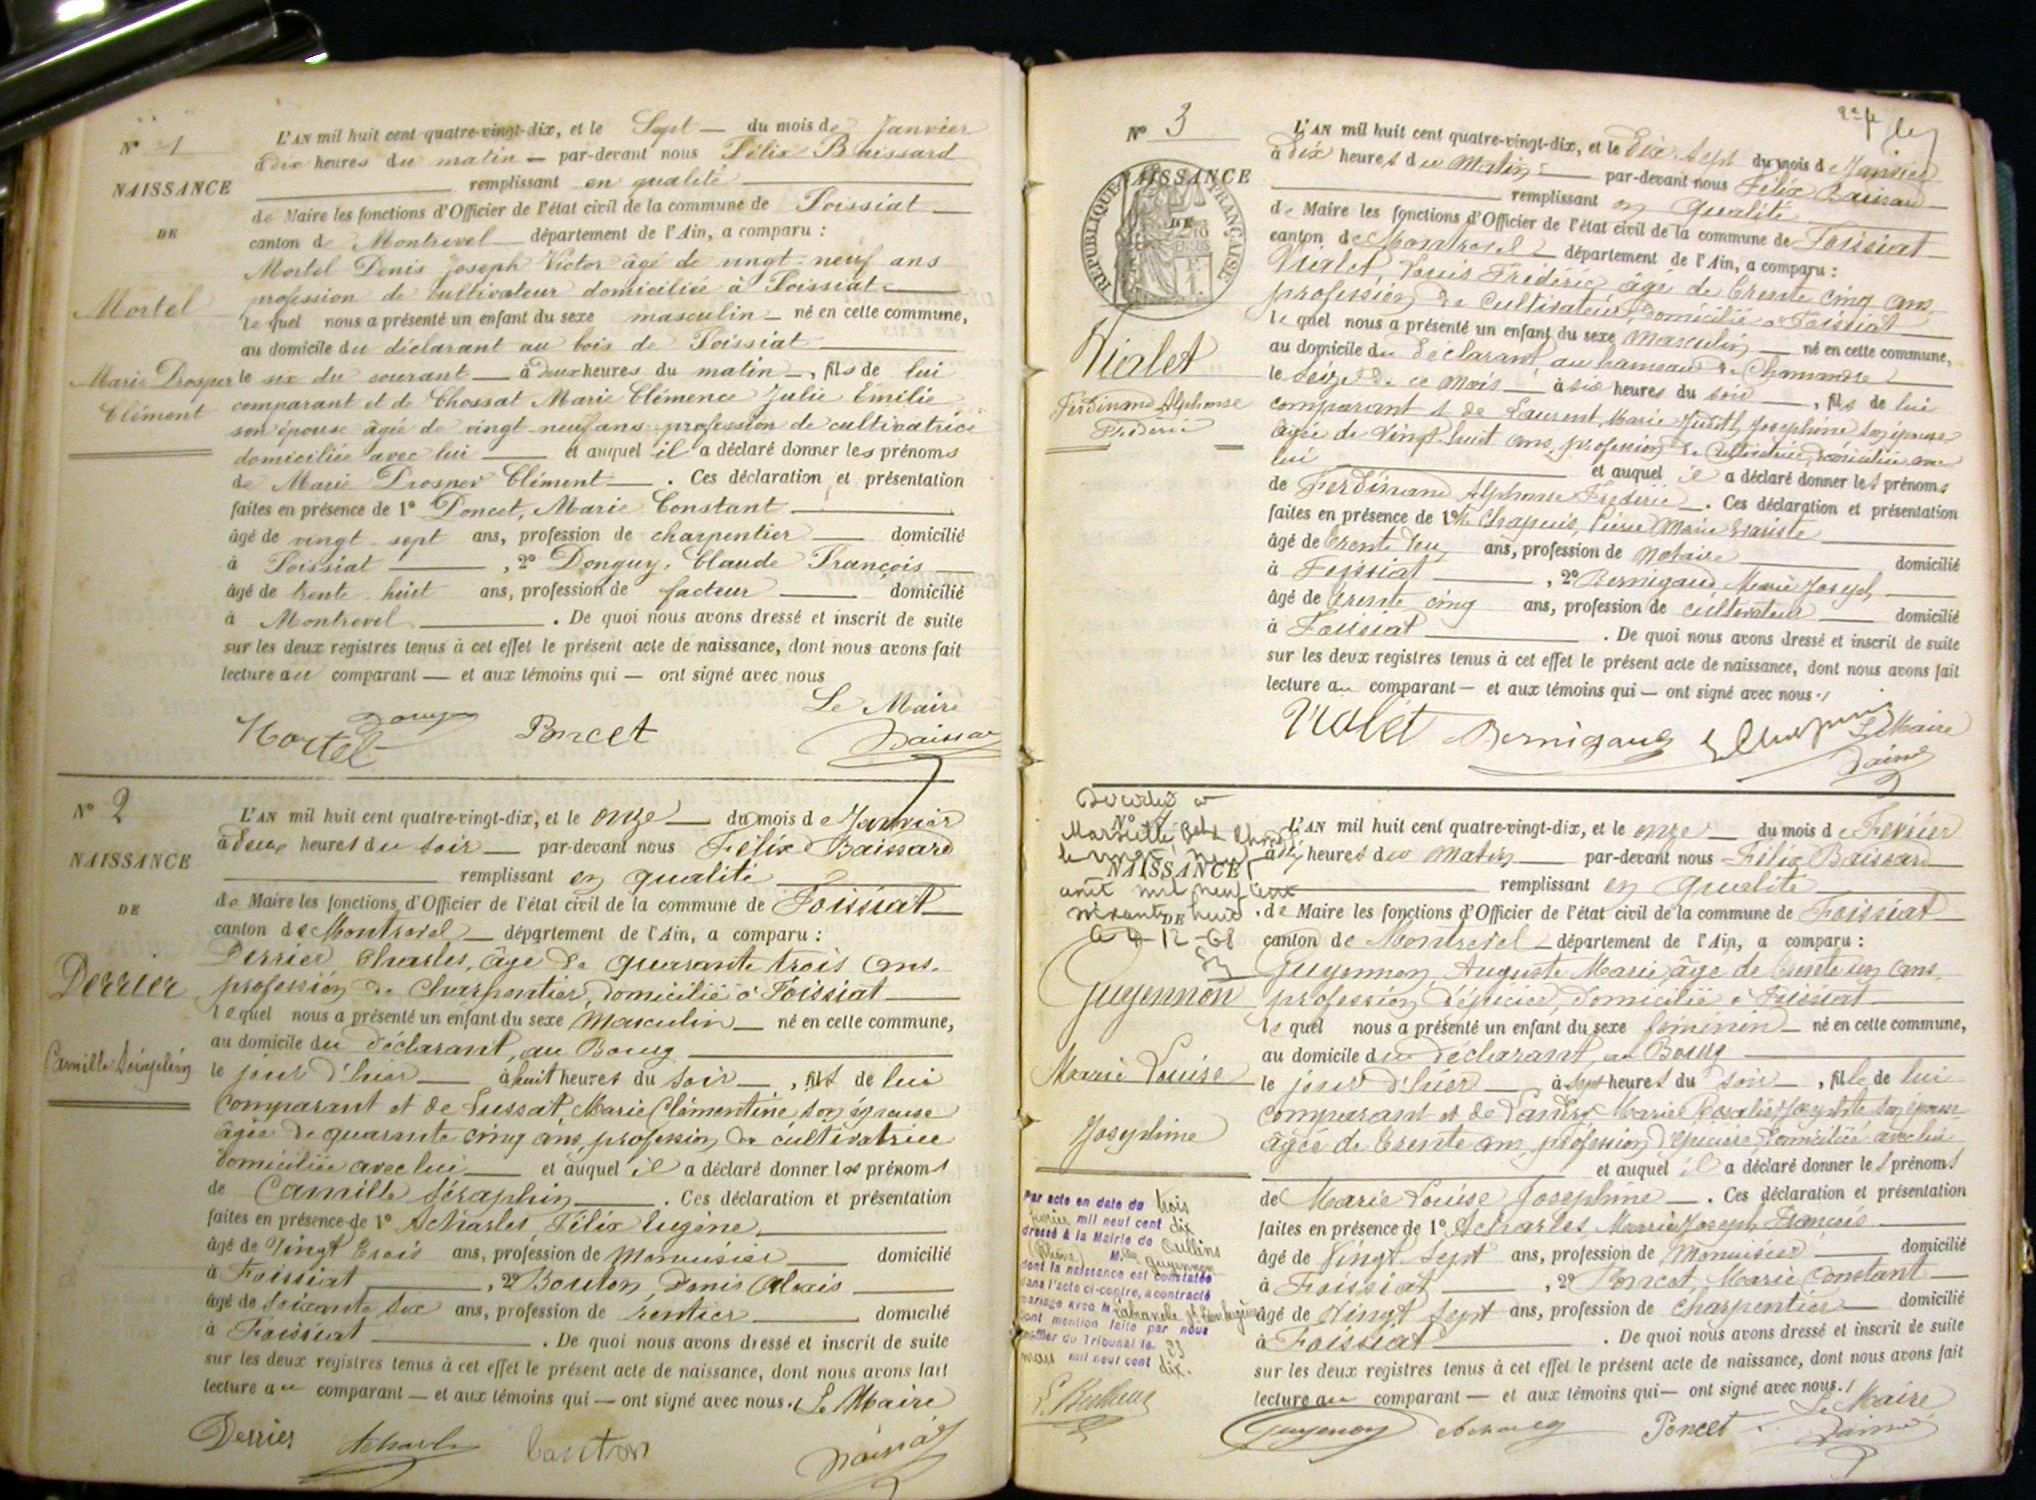 N° 1
NAISSANCE
DE
Mortel
Marie Prosper
Clément
L'AN mil huit cent quatre-vingt-dix, et le Sept — du mois de Janvier
à dix heures du matin — par-devant nous Félix Baissard
remplissant en qualité
de Maire les fonctions d'Officier de l'état civil de la commune de Foissiat
canton de Montrevel — département de l'Ain, a comparu :
Mortel Denis Joseph Victor âgé de vingt-neuf ans
profession de cultivateur domicilié à Foissiat
lequel nous a présenté un enfant du sexe masculin — né en cette commune,
au domicile du déclarant au bois de Foissiat
le six du courant — à deux heures du matin —, fils de lui
comparant et de Chossat Marie Clémence Julie Emélie
son épouse âgée de vingt-neuf ans profession de cultivatrice
domiciliée avec lui — et auquel il a déclaré donner les prénoms
de Marie Prosper Clément — . Ces déclaration et présentation
faites en présence de 1° Poncet, Marie Constant
âgé de vingt-sept ans, profession de charpentier — domicilié
à Foissiat —, 2° Donguy, Claude François
âgé de trente-huit ans, profession de facteur — domicilié
à Montrevel — . De quoi nous avons dressé et inscrit de suite
sur les deux registres tenus à cet effet le présent acte de naissance, dont nous avons fait
lecture au comparant — et aux témoins qui — ont signé avec nous
Le Maire
Mortel Donguy Poncet Baissard
N° 2
NAISSANCE
DE
Derrier
Camille Séraphin
L'AN mil huit cent quatre-vingt-dix, et le onze — du mois de Janvier
à deux heures du soir — par-devant nous Félix Baissard
remplissant en qualité
de Maire les fonctions d'Officier de l'état civil de la commune de Foissiat
canton de Montrevel — département de l'Ain, a comparu :
Derrier Charles, âgé de quarante trois ans
profession de Charpentier, domicilié à Foissiat
lequel nous a présenté un enfant du sexe Masculin — né en cette commune,
au domicile du déclarant, au Bourg
le jour d'hier — à huit heures du soir —, fils de lui
comparant et de Lussat, Marie Clémentine son épouse
âgée de quarante cinq ans, profession de cultivatrice
domiciliée avec lui — et auquel il a déclaré donner les prénoms
de Camille Séraphin — . Ces déclaration et présentation
faites en présence de 1° Acharles, Félix Eugène
âgé de Vingt trois ans, profession de Menuisier — domicilié
à Foissiat —, 2° Bouton, Denis Alexis
âgé de soixante six ans, profession de rentier — domicilié
à Foissiat — . De quoi nous avons dressé et inscrit de suite
sur les deux registres tenus à cet effet le présent acte de naissance, dont nous avons fait
lecture au comparant — et aux témoins qui — ont signé avec nous. Le Maire
Derrier Acharles Bouton Baissard
N° 3
NAISSANCE
DE
RÉPUBLIQUE FRANÇAISE
Vialet
Ferdinand Alphonse
Frédéric
L'AN mil huit cent quatre-vingt-dix, et le Dix Sept du mois de Janvier
à Dix heures du Matin — par-devant nous Félix Baissard
remplissant en qualité
de Maire les fonctions d'Officier de l'état civil de la commune de Foissiat
canton de Montrevel — département de l'Ain, a comparu :
Vialet, Louis Frédéric âgé de trente cinq ans
profession de Cultivateur, domicilié à Foissiat
lequel nous a présenté un enfant du sexe Masculin — né en cette commune,
au domicile du déclarant, au hameau de Chamandre
le seize de ce mois — à six heures du soir —, fils de lui
comparant & de Laurent, Marie Judith Josephine son épouse
âgée de Vingt huit ans, profession de Cultivatrice, domiciliée avec
lui — et auquel il a déclaré donner les prénoms
de Ferdinand Alphonse Frédéric — . Ces déclaration et présentation
faites en présence de 1° Chapuis, Pierre Marie Evariste
âgé de trente deux ans, profession de Notaire — domicilié
à Foissiat —, 2° Bernigaud Marie Joseph
âgé de trente cinq ans, profession de cultivateur — domicilié
à Foissiat — . De quoi nous avons dressé et inscrit de suite
sur les deux registres tenus à cet effet le présent acte de naissance, dont nous avons fait
lecture au comparant — et aux témoins qui — ont signé avec nous.
Le Maire
Vialet Bernigaud E Chapuis
N° 4
NAISSANCE
DE
Marseille
août mil neuf cent
soixante huit
le 4-12-68
Guyennon
Marie Louise
Josephine
Par acte en date du trois
février mil neuf cent dix
dressé à la Mairie de Oullins
(Rhône) Mlle Guyennon
dont la naissance est constatée
dans l'acte ci-contre, a contracté
mariage avec M.
Dont mention faite par nous
greffier du Tribunal le 23
mars mil neuf cent dix.
L'AN mil huit cent quatre-vingt-dix, et le onze — du mois de Février
à dix heures du Matin — par-devant nous Félix Baissard
remplissant en qualité
de Maire les fonctions d'Officier de l'état civil de la commune de Foissiat
canton de Montrevel — département de l'Ain, a comparu :
Guyennon, Auguste Marie, âgé de trente un ans
profession d'épicier, domicilié à Foissiat
lequel nous a présenté un enfant du sexe féminin — né en cette commune,
au domicile du déclarant, au Bourg
le jour d'hier — à sept heures du soir —, fille de lui
comparant et de Landry Marie Rosalie son épouse
âgée de trente ans, profession d'épicière domiciliée avec lui
et auquel il a déclaré donner les prénoms
de Marie Louise Josephine — . Ces déclaration et présentation
faites en présence de 1° Acharles, Marie Joseph François
âgé de Vingt Sept ans, profession de Menuisier — domicilié
à Foissiat —, 2° Poncet, Marie Constant
âgé de Vingt Sept ans, profession de Charpentier — domicilié
à Foissiat — . De quoi nous avons dressé et inscrit de suite
sur les deux registres tenus à cet effet le présent acte de naissance, dont nous avons fait
lecture au comparant — et aux témoins qui — ont signé avec nous.
Le Maire
Guyennon Acharles Poncet